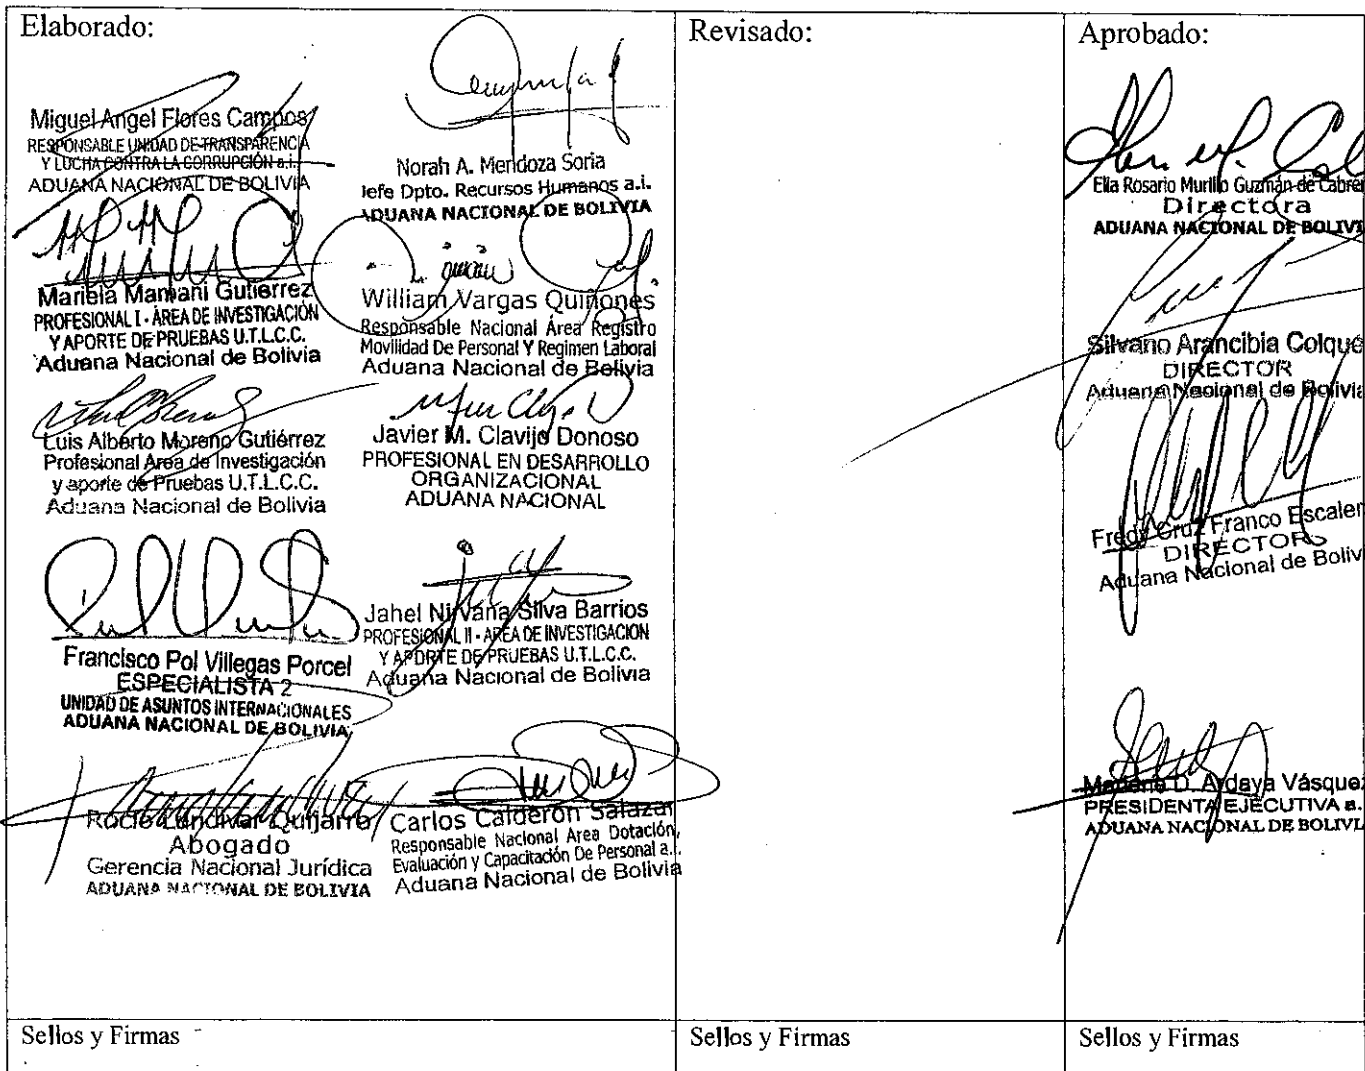 Elaborado:
Miguel Angel Flores Campos
RESPONSABLE UNIDAD DE TRANSPARENCIA
Y LUCHA CONTRA LA CORRUPCIÓN a.i.
ADUANA NACIONAL DE BOLIVIA
Norah A. Mendoza Soria
Jefe Dpto. Recursos Humanos a.i.
ADUANA NACIONAL DE BOLIVIA
Mariela Mamani Gutierrez
PROFESIONAL I - ÁREA DE INVESTIGACIÓN
Y APORTE DE PRUEBAS U.T.L.C.C.
Aduana Nacional de Bolivia
William Vargas Quiñones
Responsable Nacional Área Registro
Movilidad De Personal Y Regimen Laboral
Aduana Nacional de Bolivia
Luis Alberto Moreno Gutiérrez
Profesional Area de Investigación
y aporte de Pruebas U.T.L.C.C.
Aduana Nacional de Bolivia
Javier M. Clavijo Donoso
PROFESIONAL EN DESARROLLO
ORGANIZACIONAL
ADUANA NACIONAL
Francisco Pol Villegas Porcel
ESPECIALISTA 2
UNIDAD DE ASUNTOS INTERNACIONALES
ADUANA NACIONAL DE BOLIVIA
Jahel Nirvana Silva Barrios
PROFESIONAL II - AREA DE INVESTIGACION
Y APORTE DE PRUEBAS U.T.L.C.C.
Aduana Nacional de Bolivia
Rocio Landivar Quijarro
Abogado
Gerencia Nacional Jurídica
ADUANA NACIONAL DE BOLIVIA
Carlos Calderón Salazar
Responsable Nacional Area Dotación,
Evaluación y Capacitación De Personal a.i.
Aduana Nacional de Bolivia
Sellos y Firmas
Revisado:
Sellos y Firmas
Aprobado:
Elia Rosario Murillo Guzmán de Cabre
Directora
ADUANA NACIONAL DE BOLIVI
Silvano Arancibia Colque
DIRECTOR
Aduana Nacional de Bolivia
Fredy Cruz Franco Escaler
DIRECTOR
Aduana Nacional de Boliv
D. Ardaya Vásquez
PRESIDENTA EJECUTIVA a.
ADUANA NACIONAL DE BOLIVI
Sellos y Firmas